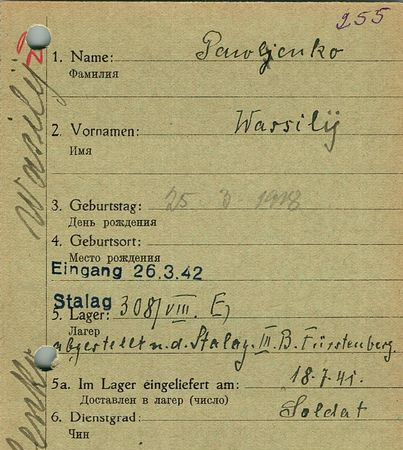 255
1. Name: Pawljenko
Фамилия
2. Vornamen: Wassilij
Имя
3. Geburtstag: 25 3 1918
День рождения
4. Geburtsort:
Место рождения
Eingang 26.3.42
Stalag
5. Lager: 308/VIII. E,
Лагер
abgestellt n. d. Stalag. III. B. Fürstenberg.
5a. Im Lager eingeliefert am: 18.7.41.
Доставлен в лагер (число)
6. Dienstgrad: Soldat
Чин
Wasilij